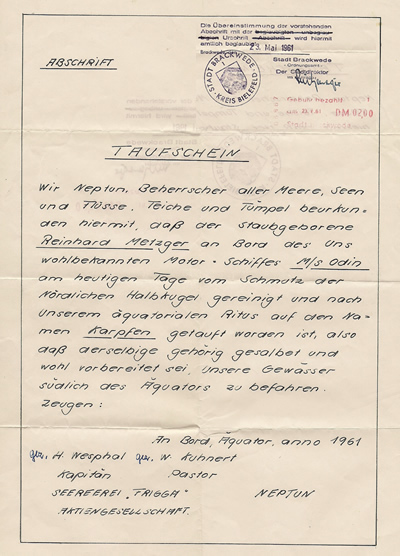 Die Übereinstimmung der vorstehenden
Abschrift mit der beglaubigten - unbeglau-
bigten Urschrift - Abschrift - wird hiermit
amtlich beglaubigt.
Brackwede
23. Mai 1961
Stadt Brackwede
- Ordnungsamt -
Der Stadtdirektor
STADT BRACKWEDE
KREIS BIELEFELD
Gebühr bezahlt
DM 02,00
ABSCHRIFT
TAUFSCHEIN
Wir Neptun, Beherrscher aller Meere, Seen
und Flüsse, Teiche und Tümpel beurkun-
den hiermit, daß der Staubgeborene
Reinhard Metzger an Bord des Uns
wohlbekannten Motor-Schiffes M/s Odin
am heutigen Tage vom Schmutz der
Nördlichen Halbkugel gereinigt und nach
unserem äquatorialen Ritus auf den Na-
men Karpfen getauft worden ist, also
daß derselbige gehörig gesalbet und
wohl vorbereitet sei, unsere Gewässer
südlich des Äquators zu befahren.
Zeugen:
An Bord, Äquator, anno 1961
gez. H. Wesphal gez. W. Kuhnert
Kapitän Pastor
SEEREEREI "FRIGGA" NEPTUN
AKTIENGESELLSCHAFT.